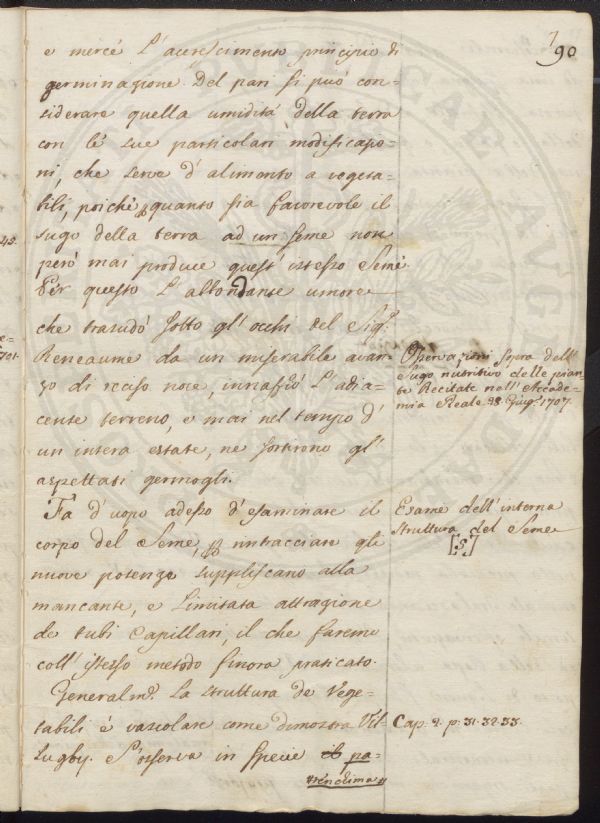 90
e mercè l'acerescimento principio di
germinazione. Del pari si può con-
siderare quella umidità della terra
con le sue particolari modificazio-
ni, che serve d'alimento a vegeta-
bili, poichè quanto sia favorevole il
sugo della terra ad un seme non
però mai produce quest'istesso Seme
Per questo l'abbondante umore
che trasudò sotto gl'occhi del Sig.
Reneaume da un miserabile avan-
zo di reciso noce, innaffiò l'adia-
cente terreno, e mai nel tempo d'
un intera estate, ne sortirono gl'
aspettati germogli.
Fa d'uopo adesso d'esaminare il
corpo del Seme, rintracciare gli
nuove potenze suppliscano alla
mancante, e limitata attrazione
de tubi Capillari, il che faremo
coll'istesso metodo finora praticato.
Generalm. La struttura de Vege-
tabili è vascolare come dimostra
Lugby. S'osserva in specie pa-
rendima
Osservazioni sopra dell'
sugo nutritivo delle pian-
te Recitate nell'Accade-
mia Reale Giug. 1707.
Esame dell'interna
struttura del Seme
[5]
Cap. 2. p. 31. 32. 33.